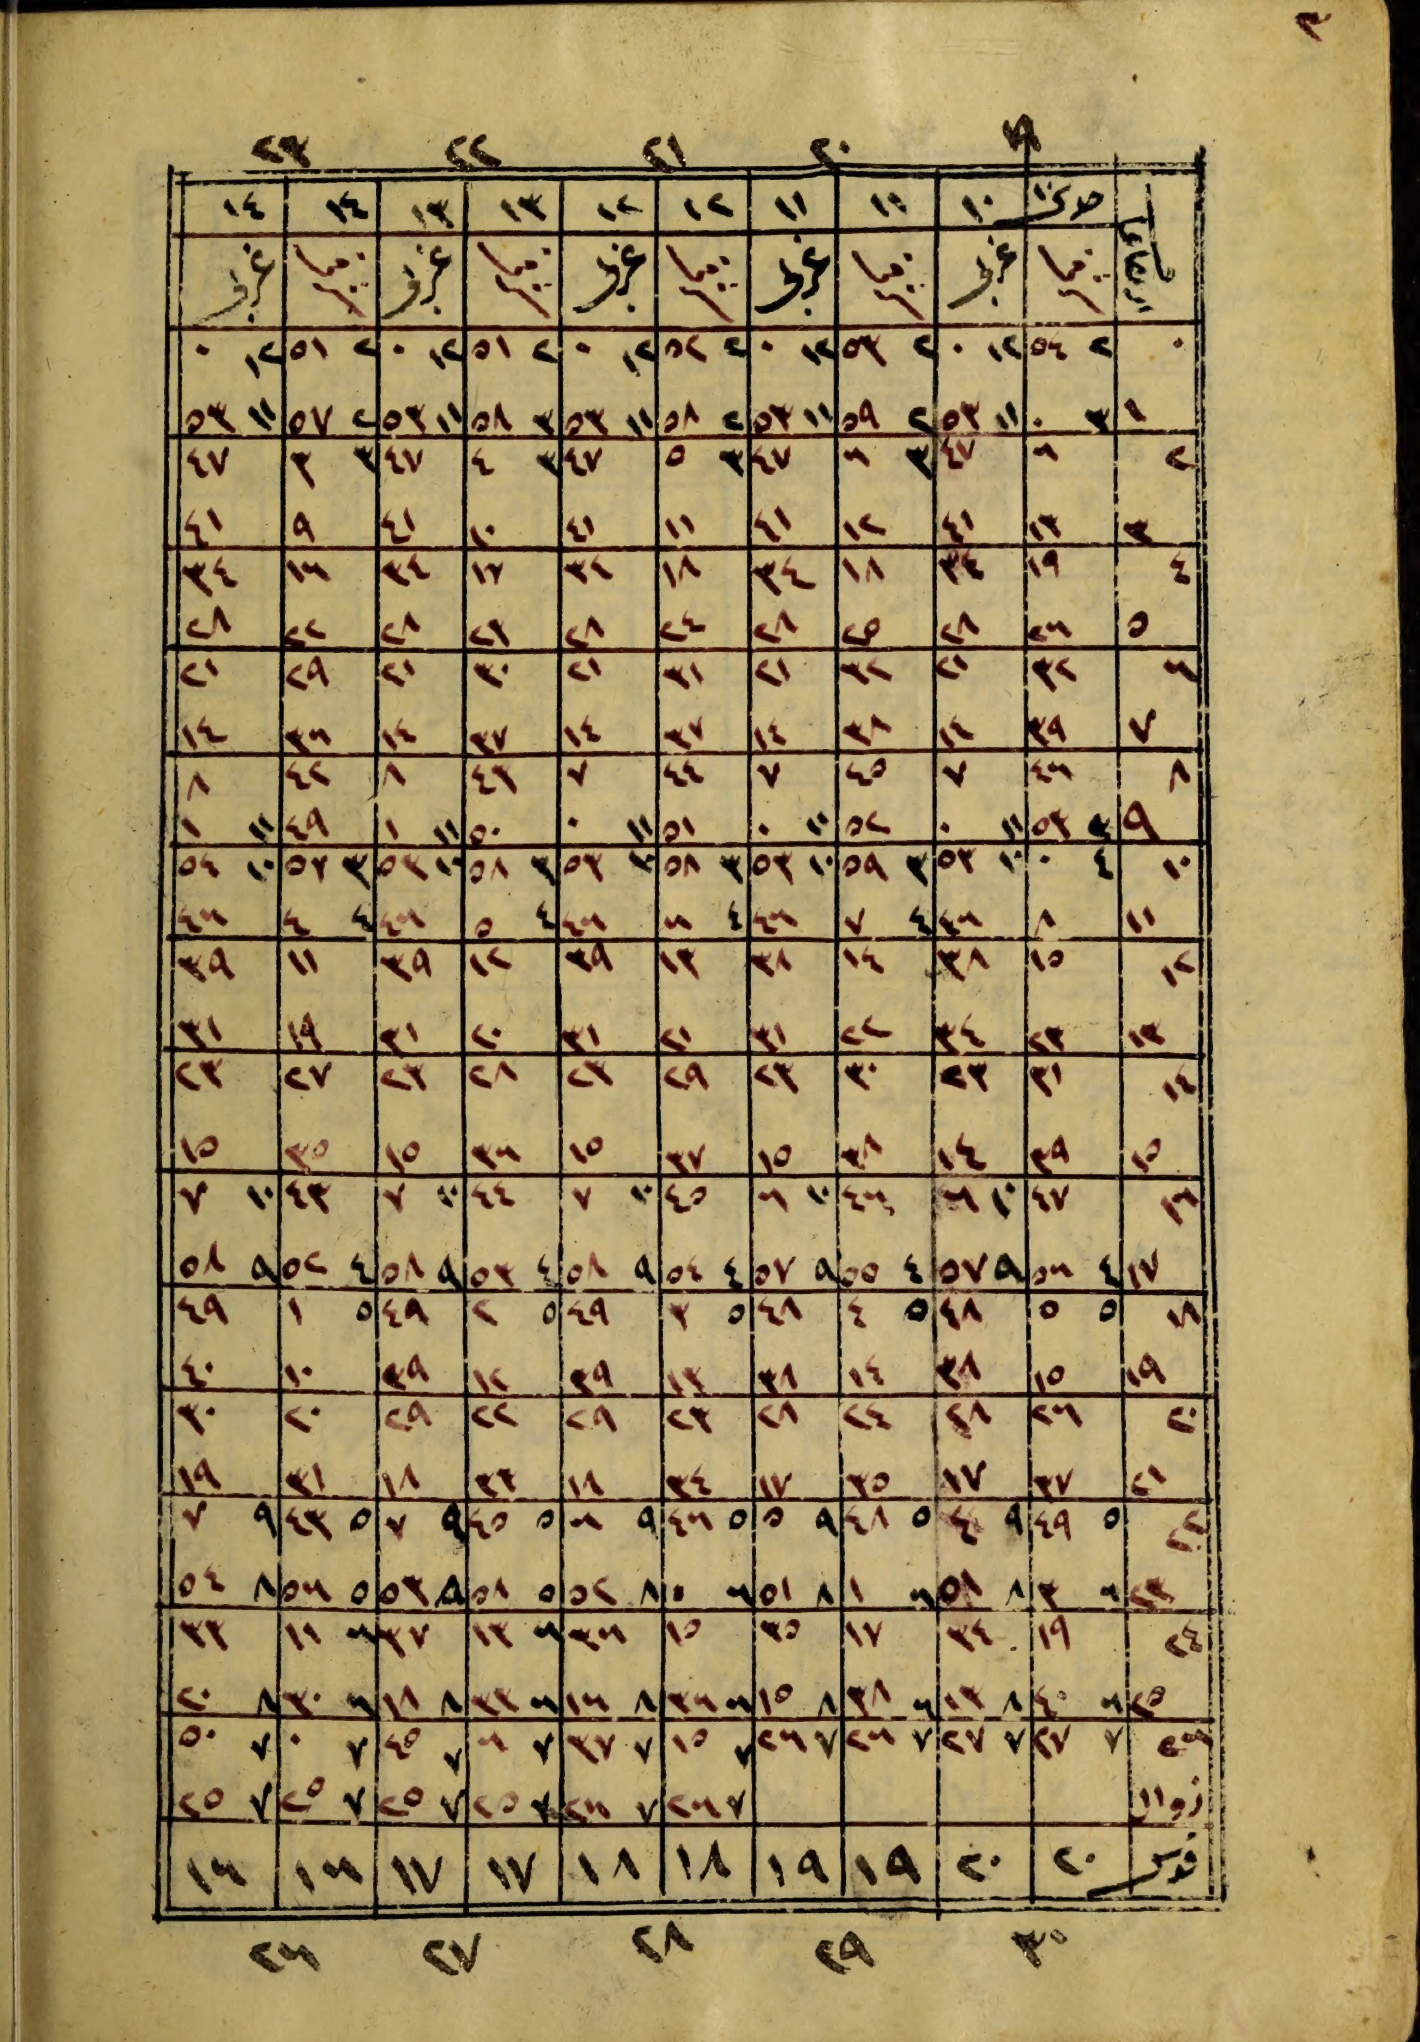 ٣
١٩ ٢٠ ٢١ ٢٢ ٢٣
جدى ١٠ ١١ ١١ ١٢ ١٢ ١٣ ١٣ ١٤ ١٤
ارتفاع غربى غربى غربى غربى غربى
٠ ٢ ٥٤ ١٢ ٠ ٢ ٥٣ ١٢ ٠ ٢ ٥٢ ١٢ ٠ ٢ ٥١ ١٢ ٠ ٢ ٥١ ١٢ ٠
١ ٣ ٠ ١١ ٥٣ ٢ ٥٩ ١١ ٥٣ ٢ ٥٨ ١١ ٥٣ ٣ ٥٨ ١١ ٥٣ ٢ ٥٧ ١١ ٥٣
٢ ٦ ٤٧ ٣ ٦ ٤٧ ٣ ٥ ٤٧ ٣ ٤ ٤٧ ٣ ٣ ٤٧
٣ ١٣ ٤١ ١٢ ٤١ ١١ ٤١ ١٠ ٤١ ٩ ٤١
٤ ١٩ ٣٤ ١٨ ٣٤ ١٨ ٣٤ ١٧ ٣٤ ١٦ ٣٤
٥ ٢٦ ٢٨ ٢٥ ٢٨ ٢٤ ٢٨ ٢٣ ٢٨ ٢٢ ٢٨
٦ ٣٢ ٢١ ٣٢ ٢١ ٣١ ٢١ ٣٠ ٢١ ٢٩ ٢١
٧ ٣٩ ١٤ ٣٨ ١٤ ٣٧ ١٤ ٣٧ ١٤ ٣٦ ١٤
٨ ٤٦ ٧ ٤٥ ٧ ٤٤ ٧ ٤٣ ٨ ٤٢ ٨
٩ ٣ ٥٣ ١١ ٠ ٥٢ ١١ ٠ ٥١ ١١ ٠ ٥٠ ١١ ١ ٤٩ ١١ ١
١٠ ٤ ٠ ١٠ ٥٣ ٣ ٥٩ ١٠ ٥٣ ٣ ٥٨ ١٠ ٥٣ ٣ ٥٨ ١٠ ٥٣ ٣ ٥٧ ١٠ ٥٤
١١ ٨ ٤٦ ٤ ٧ ٤٦ ٤ ٦ ٤٦ ٤ ٥ ٤٦ ٤ ٤ ٤٦
١٢ ١٥ ٣٨ ١٤ ٣٨ ١٣ ٣٩ ١٢ ٣٩ ١١ ٣٩
١٣ ٢٣ ٣٤ ٢٢ ٣١ ٢١ ٣١ ٢٠ ٣١ ١٩ ٣١
١٤ ٣١ ٢٣ ٣٠ ٢٣ ٢٩ ٢٣ ٢٨ ٢٣ ٢٧ ٢٣
١٥ ٣٩ ١٤ ٣٨ ١٥ ٣٧ ١٥ ٣٦ ١٥ ٣٥ ١٥
١٦ ٤٧ ١٠ ٦ ٤٦ ١٠ ٦ ٤٥ ١٠ ٧ ٤٤ ١٠ ٧ ٤٣ ١٠ ٧
١٧ ٤ ٥٦ ٩ ٥٧ ٤ ٥٥ ٩ ٥٧ ٤ ٥٤ ٩ ٥٨ ٤ ٥٣ ٩ ٥٨ ٤ ٥٢ ٩ ٥٨
١٨ ٥ ٥ ٤٨ ٥ ٤ ٤٨ ٥ ٣ ٤٩ ٥ ٢ ٤٩ ٥ ١ ٤٩
١٩ ١٥ ٣٨ ١٤ ٣٨ ١٣ ٣٩ ١٢ ٣٩ ١٠ ٤٠
٢٠ ٢٦ ٢٨ ٢٤ ٢٨ ٢٣ ٢٩ ٢٢ ٢٩ ٢٠ ٣٠
٢١ ٣٧ ١٧ ٣٥ ١٧ ٣٤ ١٨ ٣٣ ١٨ ٣١ ١٩
٢٢ ٥ ٤٩ ٩ ٤ ٥ ٤٨ ٩ ٥ ٥ ٤٦ ٩ ٦ ٥ ٤٥ ٩ ٧ ٥ ٤٣ ٩ ٧
٢٣ ٦ ٣ ٨ ٥١ ٦ ١ ٨ ٥١ ٦ ٠ ٨ ٥٢ ٥ ٥٨ ٨ ٥٣ ٥ ٥٦ ٨ ٥٤
٢٤ ١٩ ٣٤ ١٧ ٣٥ ١٥ ٣٦ ٦ ١٣ ٣٧ ٦ ١١ ٣٣
٢٥ ٦ ٤٠ ٨ ١٣ ٦ ٣٨ ٨ ١٥ ٦ ٣٦ ٨ ١٦ ٦ ٣٣ ٨ ١٨ ٦ ٣٠ ٨ ٢٠
٢٦ ٧ ٢٧ ٧ ٢٧ ٧ ٢٦ ٧ ٢٦ ٧ ١٥ ٧ ٣٧ ٧ ٦ ٧ ٤٥ ٧ ٠ ٧ ٥٠
زوال ٧ ٢٦ ٧ ٢٦ ٧ ٢٥ ٧ ٢٥ ٧ ٢٥ ٧ ٢٥
قوس ٢٠ ٢٠ ١٩ ١٩ ١٨ ١٨ ١٧ ١٧ ١٦ ١٦
٣٠ ٢٩ ٢٨ ٢٧ ٢٦